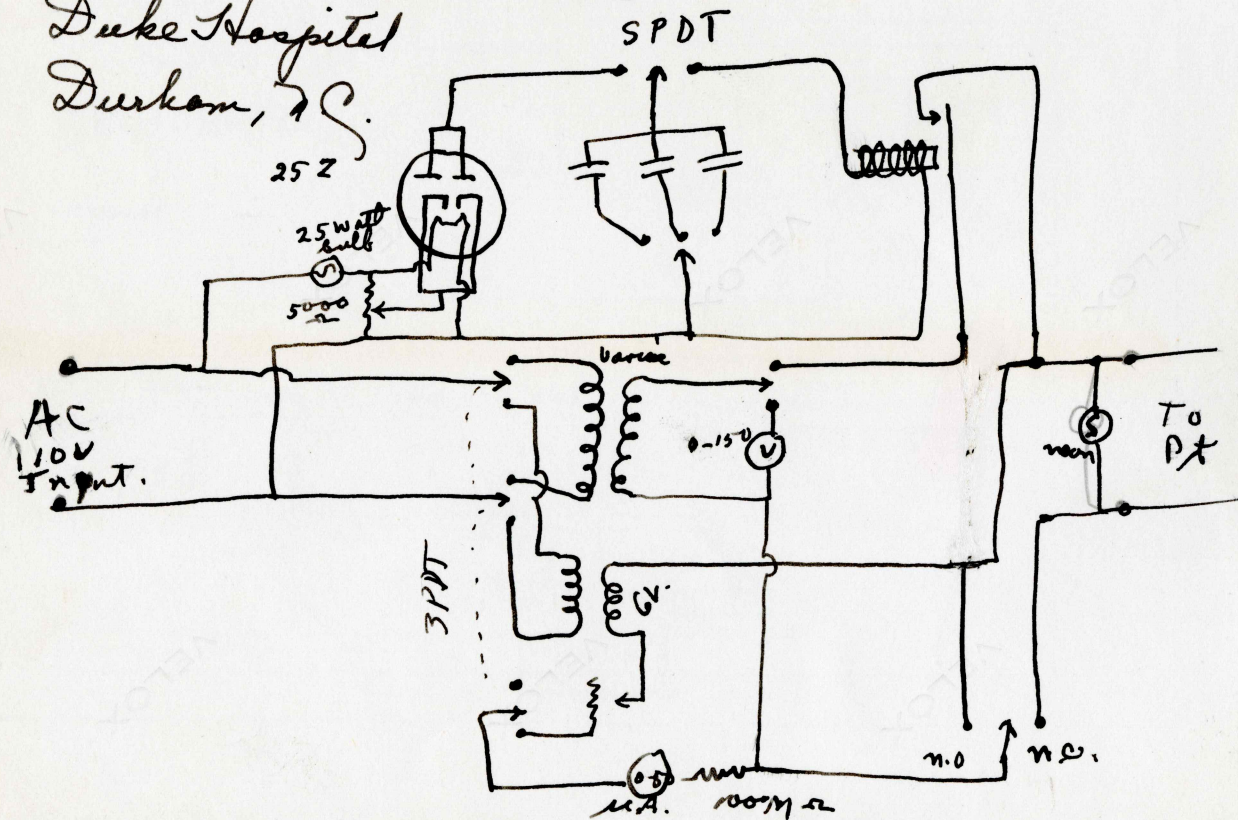 Duke Hospital
Durham, N.C.
SPDT
25 Z
25 watt
bulb
5000
Ω
Variac
AC
110V
Input.
0-150
V
neon
To
Pt
3PDT
6V.
n.o
n.c.
0-50
M.A.
Ω
VELOX
VELOX
VELOX
VELOX